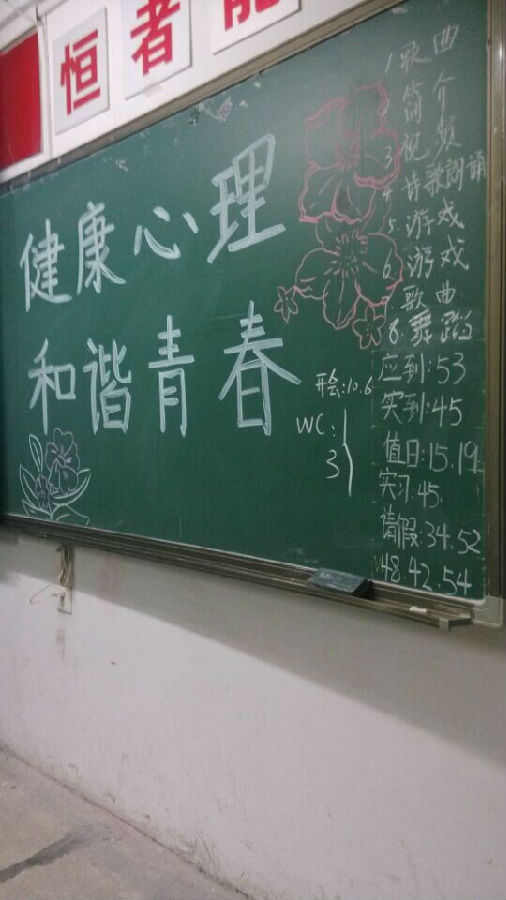 恒者能
健康心理
和谐青春
1 歌曲
简介
3 视频
4 诗歌朗诵
5 游戏
6. 游戏
歌曲
8. 舞蹈
应到:53
实到:45
值日:15.19
实习.45.
请假:34.52
48.42.54
开会:10.6
WC:1
3